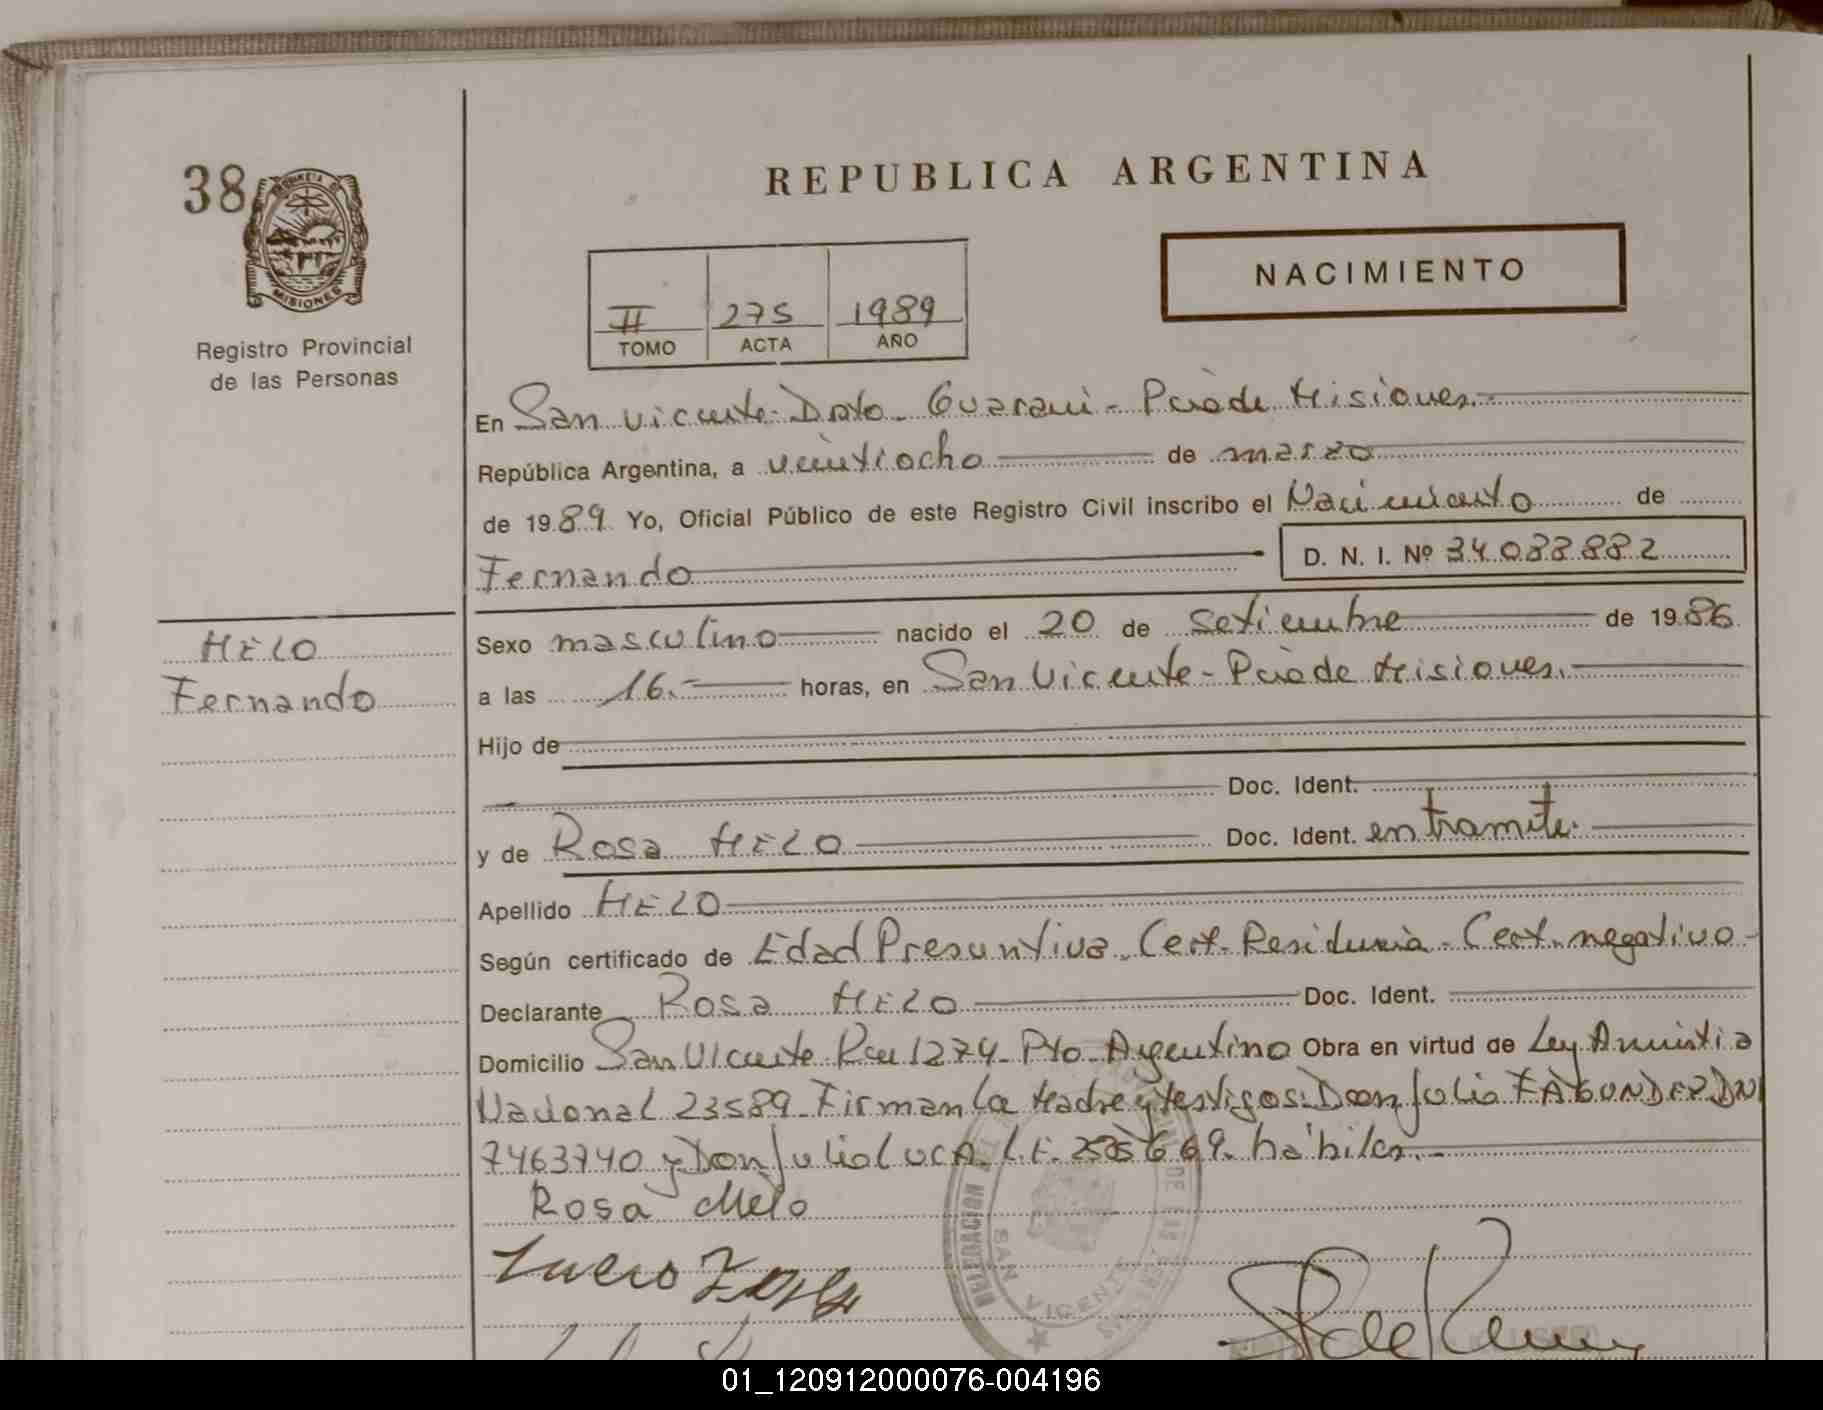 38
MISIONES
Registro Provincial
de las Personas
REPUBLICA ARGENTINA
NACIMIENTO
II 275 1989
TOMO ACTA AÑO
En San Vicente - Dpto. Guarani - Pcia de Misiones.
República Argentina, a veintiocho de marzo
de 1989 Yo, Oficial Público de este Registro Civil inscribo el Nacimiento de
Fernando D. N. I. Nº 34.088.882
MELO
Fernando
Sexo masculino nacido el 20 de setiembre de 1986
a las 16.- horas, en San Vicente - Pcia de Misiones.
Hijo de
Doc. Ident.
y de Rosa MELO Doc. Ident. en tramite.
Apellido MELO
Según certificado de Edad Presuntiva. Cert. Residencia - Cert. negativo
Declarante Rosa MELO Doc. Ident.
Domicilio San Vicente 1274 - Pto. Argentino Obra en virtud de Ley Amnistia
Nacional 23589. Firman la Madre y testigos: Don Julio FAGUNDEZ DNI
7463740 y Don Julio LUCA. L.E. hábiles.-
Rosa Melo
DELEGACION
SAN VICENTE
01_120912000076-004196